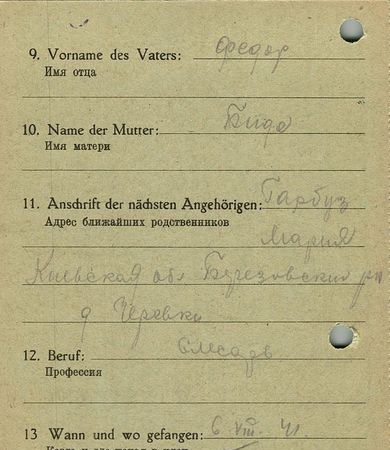 9. Vorname des Vaters: Федор
Имя отца
10. Name der Mutter: Бида
Имя матери
11. Anschrift der nächsten Angehörigen: Гарбуз
Адрес ближайших родственников
Мария
Киевская обл
д Черевки
12. Beruf: слесарь
Профессия
13 Wann und wo gefangen: 6. VIII. 41.